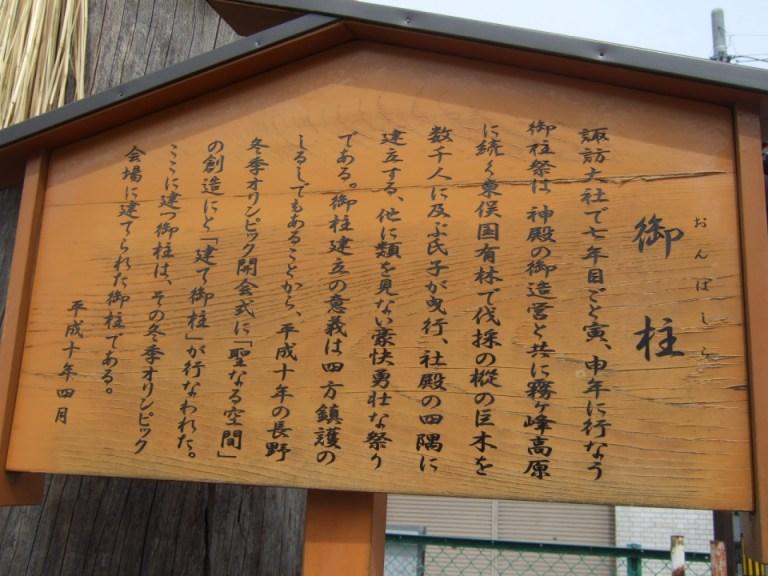 おんばしら
御柱
諏訪大社で七年目ごと寅、申年に行なう
御柱祭は、神殿の御造営と共に霧ヶ峰高原
に続く東俣国有林で伐採の樅の巨木を
数千人に及ぶ氏子が曳行、社殿の四隅に
建立する、他に類を見ない豪快勇壮な祭り
である。御柱建立の意義は四方鎮護の
しるしでもあることから、平成十年の長野
冬季オリンピック開会式に「聖なる空間」
の創造にと「建て御柱」が行なわれた。
ここに建つ御柱は、その冬季オリンピック
会場に建てられた御柱である。
平成十年四月